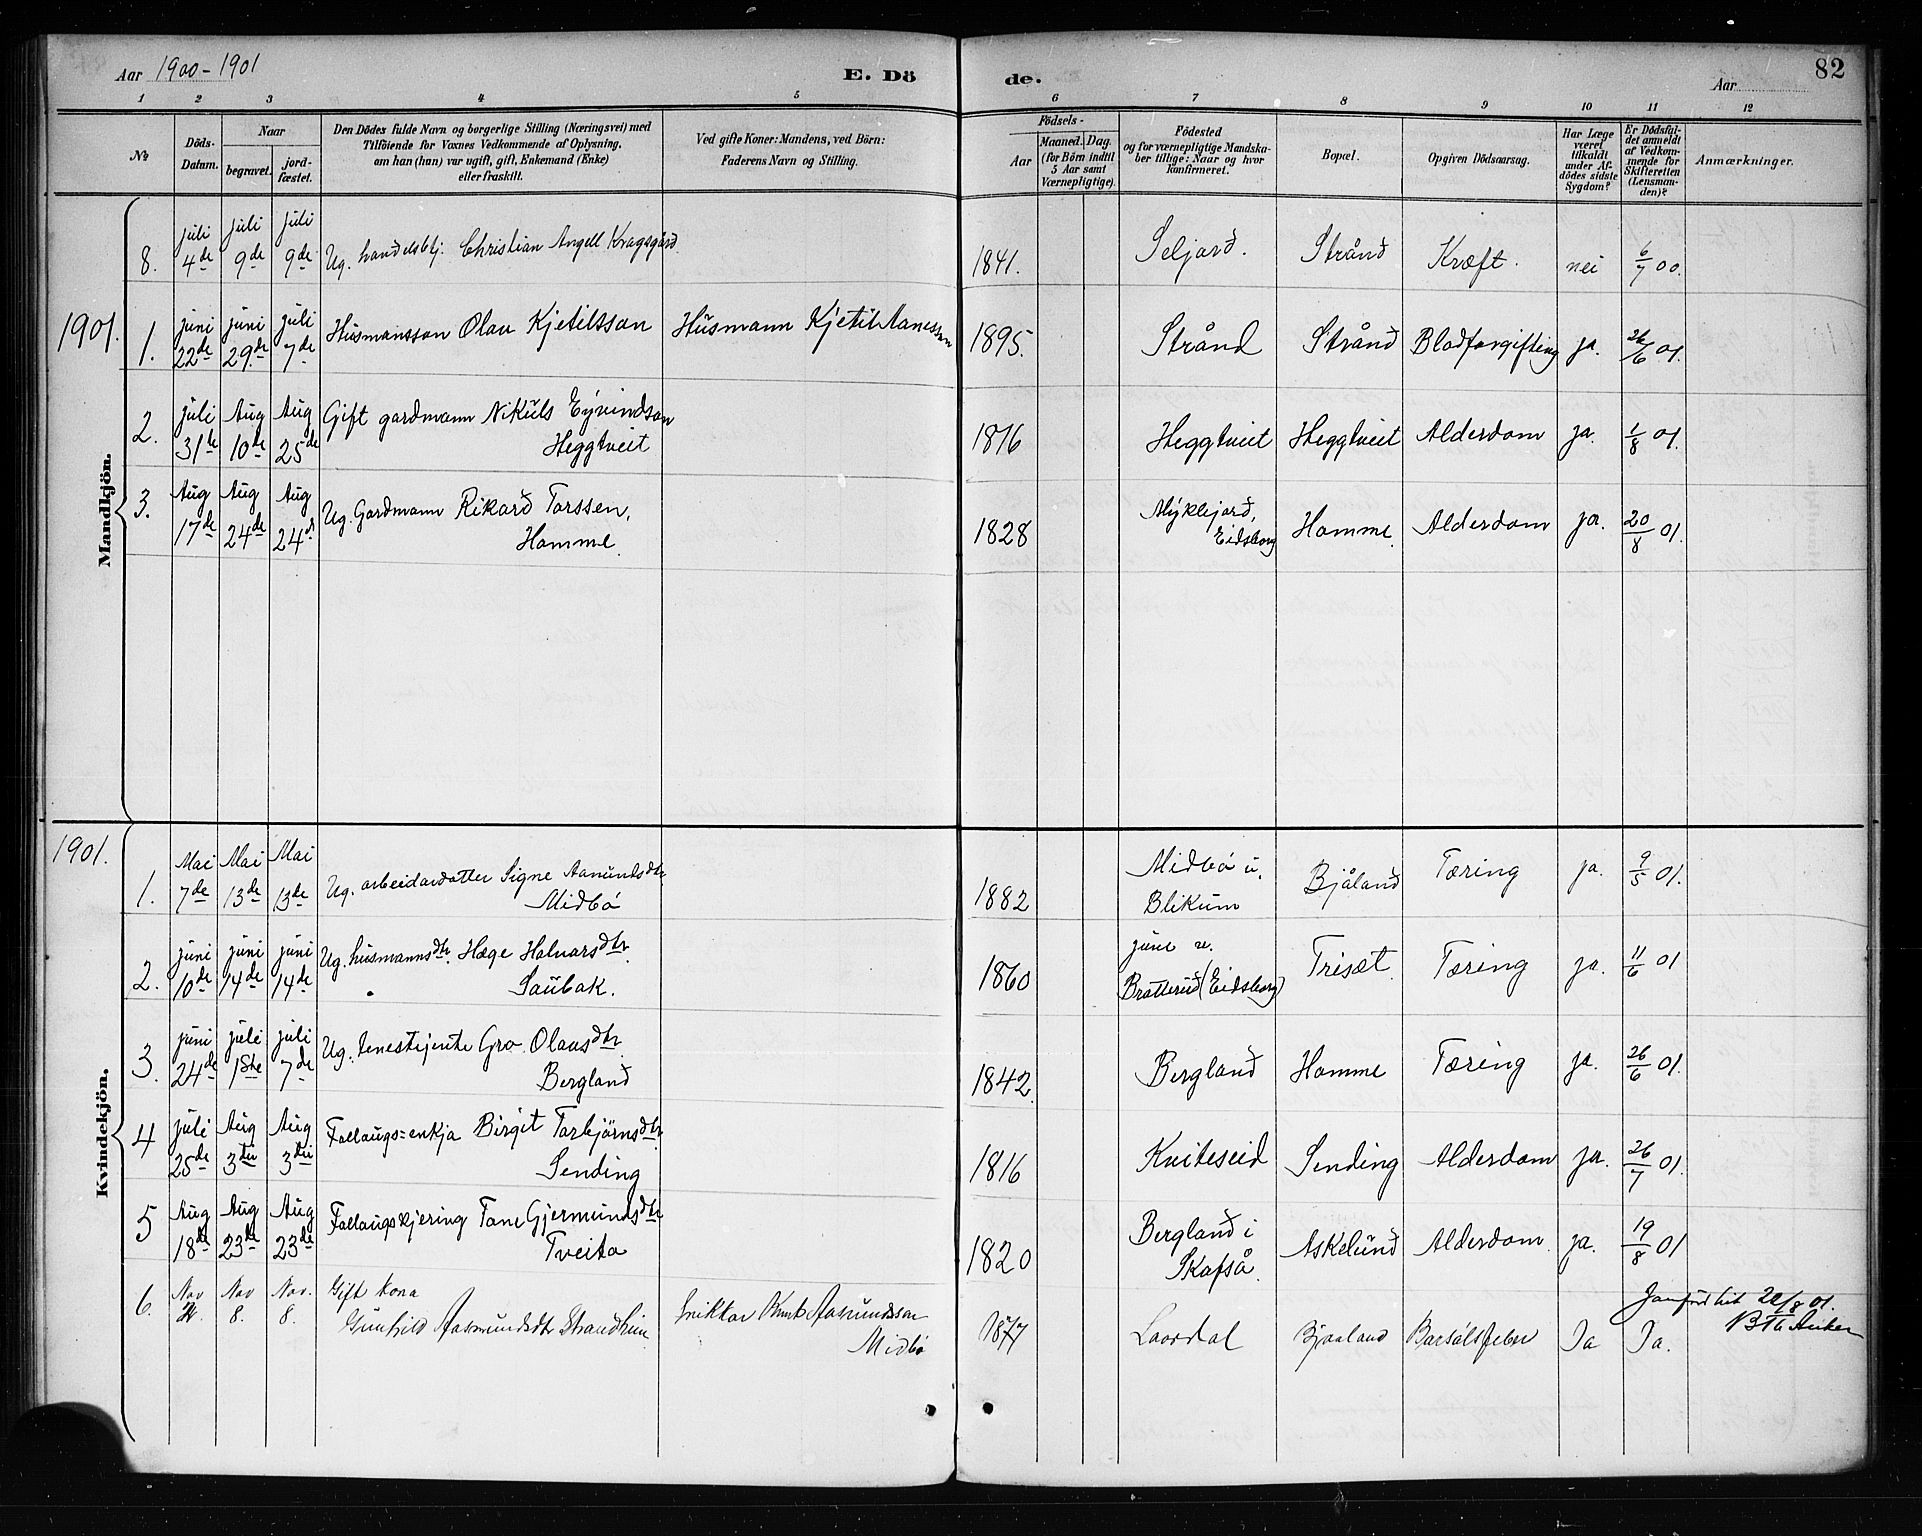 Aar 1900-1901
E. Dö
de.
Aar
82
1 2 3 4 5 6 7 8 9 10 11 12
No
Döds-Datum.
Naar
begravet.
jord-fæstet.
Den Dödes fulde Navn og borgerlige Stilling (Næringsvei) med
Tilföiende for Voxnes Vedkommende af Oplysning,
om han (hun) var ugift, gift, Enkemand (Enke)
eller fraskilt.
Ved gifte Koner: Mandens, ved Börn:
Faderens Navn og Stilling.
Födsels-
Aar
Maaned. Dag.
(for Börn indtil
5 Aar samt
Værnepligtige).
Födested
og for værnepligtige Mandska-
ber tillige: Naar og hvor
konfirmeret.
Bopæl.
Opgiven Dödsaarsag.
Har Læge
været
tilkaldt
under Af-
dödes sidste
Sygdom?
Er Dödsfal-
det anmeldt
af Vedkom-
mende for
Skifteretten
(Lensman-
den)?
Anmærkninger.
Mandkjön.
8. juli 4de juli 9de juli 9de Ug. handelsbtj. Christian Angell Kragsgård. 1841. Seljord. Strånd Kræft. nei 6/7 00.
1901. 1. juni 22de juni 29de juli 7de Husmansson Olav Kjetilsson Husmann Kjetil Aanesson 1895. Strånd Strånd Blodforgifting ja. 26/6 01.
2. juli 31te Aug 10de Aug 25de Gift gardmann Nikuls Eyvindson
Heggtveit 1816 Heggtveit Heggtveit Alderdom ja. 1/8 01.
3. Aug 17de Aug 24de Aug 24d Ug. Gardmann Rikard Torssen,
Homme. 1828 Myklejord,
Eidsborg Homme. Alderdom ja. 20/8 01.
Kvindekjön.
1901. 1. Mai 7de Mai 13de Mai 13de Ug. arbeidardotter Signe Aamundsdtr
Midbö 1882 Midbö u.
Blikum Bjåland Tæring ja. 9/5 01.
2. juni 10de juni 14de juni 14de Ug. husmannsdtr. Hæge Halvorsdtr.
Saubak. 1860 june u.
Bratterud (Eidsborg) Trisæt. Tæring ja. 11/6 01
3. juni 24de juli 1ste juli 7de Ug. tenestejente Gro Olavsdtr.
Bergland 1842. Bergland Homme Tæring ja. 26/6 01.
4 juli 25de Aug 3die Aug 3die Follaugs=enkja Birgit Torbjörnsdtr.
Sending 1816 Kviteseid Sending Alderdom ja. 26/7 01.
5 Aug 18de Aug 23de Aug 23de Follaugskjering Tone Gjermundsdtr
Tveito 1820 Bergland i
Skafså. Askelund Alderdom. ja. 19/8 01
Jamført hit 22/8 01.
B Th Anker
6. Nov Nov 8. Nov. 8. Gift kona
Gunhild Aasmundsdtr Strandheim Snikkar Knut Aasmundsson
Midbö 1877 Laardal Bjaaland Barsölsfeber Ja Ja.